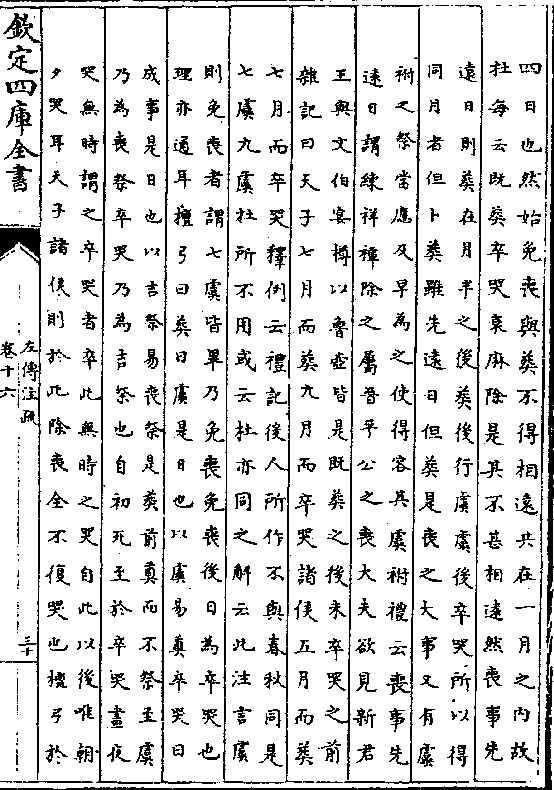 四日也然始免喪與葬不得相遠共在一月之内故
杜每云既葬卒哭衰麻除是其不甚相遠然喪事先
遠日則葬在月半之後葬後行虞虞後卒哭所以得
同月者但卜葬雖先遠日但葬是喪之大事又有虞
祔之祭當應及早為之使得容其虞祔禮云喪事先
遠日謂練祥禫除之屬晉平公之喪大夫欲見新君
王與文伯宴樽以魯壺皆是既葬之後未卒哭之前
雜記曰天子七月而葬九月而卒哭諸侯五月而葬
七月而卒哭釋例云禮記後人所作不與春秋同是
七虞九虞杜所不用或云杜亦同之解云此注言虞
則免喪者謂七虞皆畢乃免喪免喪後日為卒哭也
理亦通耳檀弓曰葬日虞是日也以虞易奠卒哭曰
成事是日也以吉祭易喪祭是葬前奠而不祭至虞
乃為喪祭卒哭乃為吉祭也自初死至於卒哭晝夜
哭無時謂之卒哭者卒此無時之哭自此以後唯朝
夕哭耳天子諸侯則於此除喪全不復哭也檀弓於
欽定四庫全書
左傳注疏
卷十六
三十